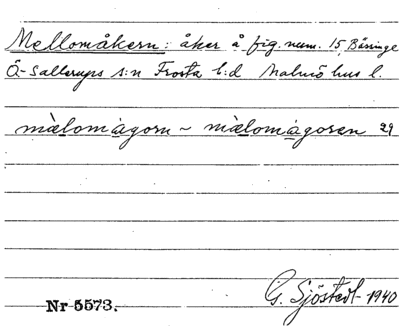 Mellomåkern: åker å fig. num. 15, Bäringe
Ö-Sallerups s:n Frosta h:d Malmöhus l.
mælomågorn ~ mælomågoren 29
G. Sjöstedt 1940
Nr 5573.